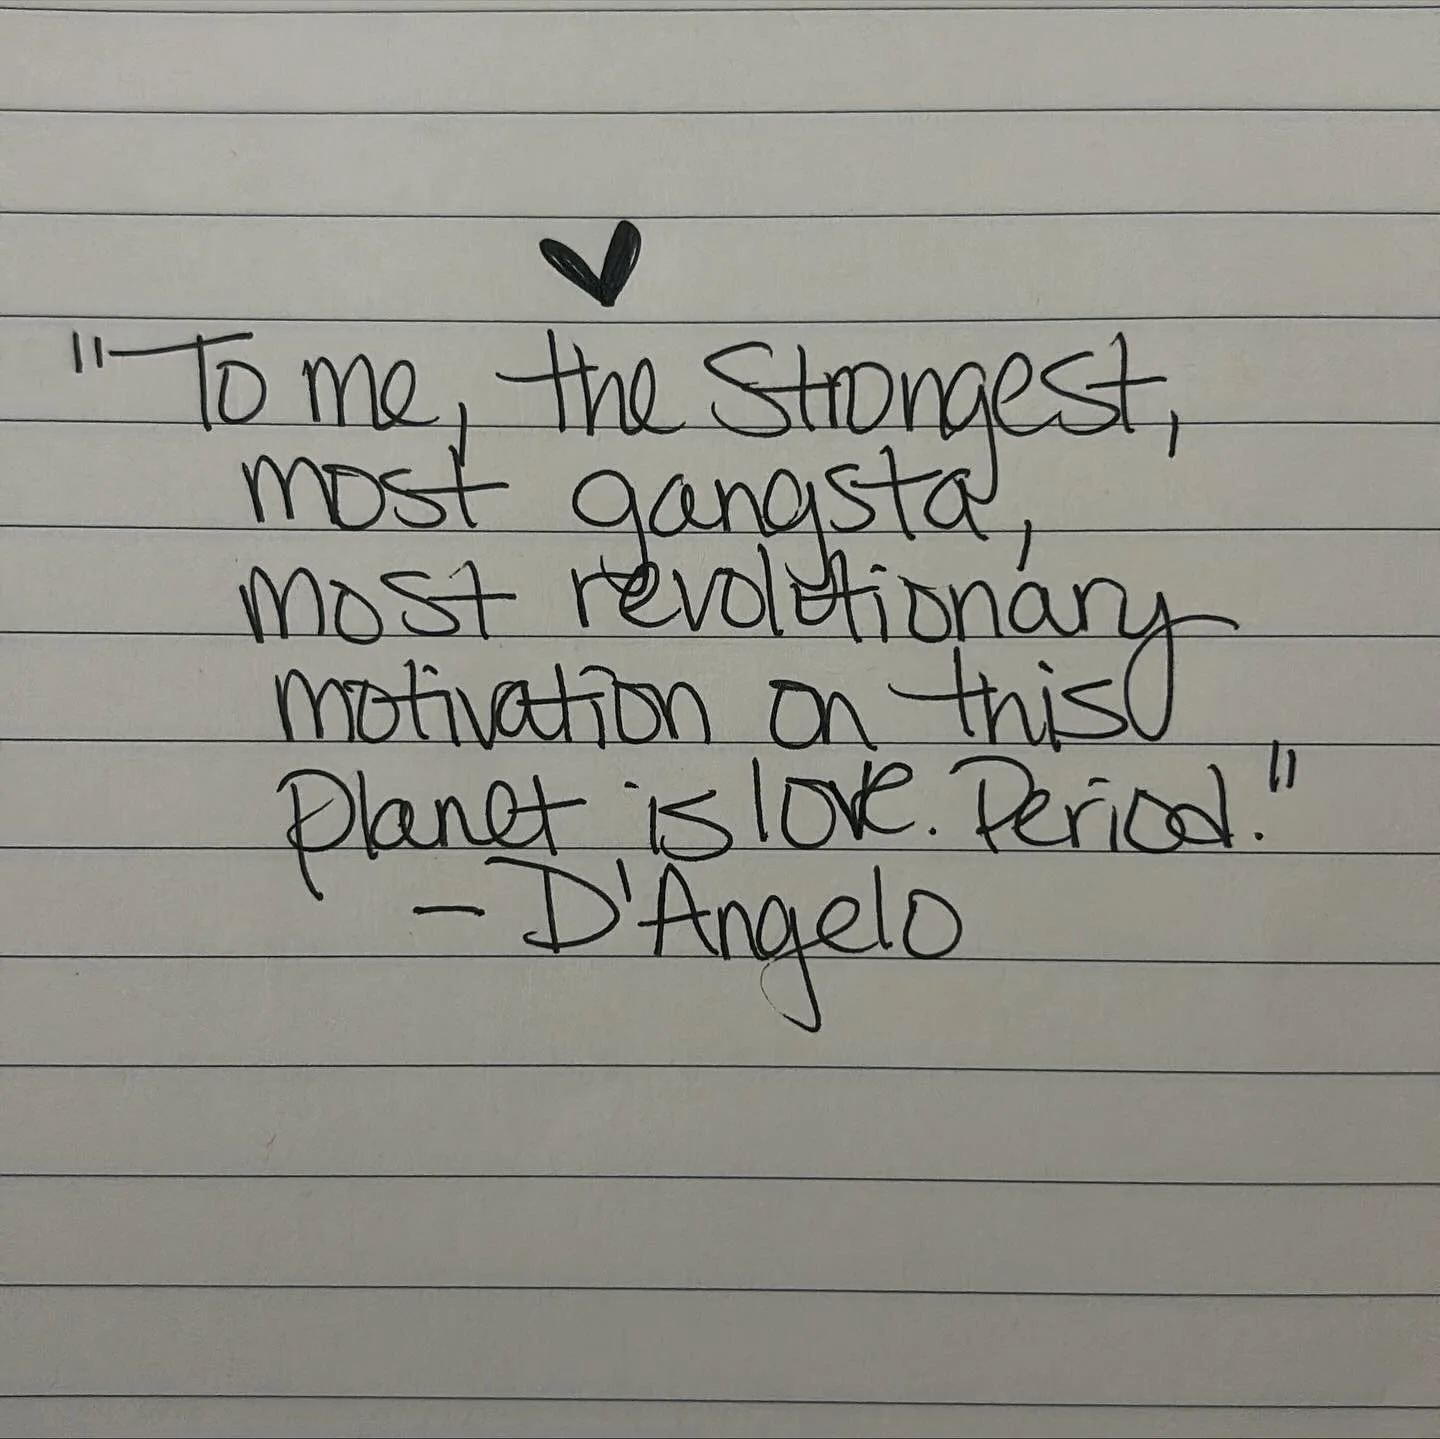 "To me, the Strongest,
most gangsta,
most revolutionary
motivation on this
planet is love. Period."
- D'Angelo